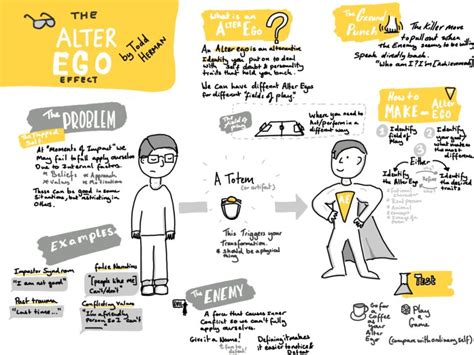 THE
ALTER
EGO
EFFECT
by Todd
HERMAN
What is an
ALTER EGO?
An Alter ego is an alternative
Identity you put on to deal
with self doubt & personality
traits that hold you back.
We can have different Alter Egos
for different fields of play.
The Ground
Punch
The Killer move
to pull out when
The Enemy seems to be winning
Speak directly back.
"Who am I? I'm [achievement]
The field of
play
Where you need to
Act/perform in a
different way
How to
MAKE an ALTER
EGO
Identify
Field
of play
Identify
your goal/
what matters
the most
Either
Identify
the Alter Ego
Identify
the desired
traits
The
PROBLEM
The Trapped
Self
At "Moments of Impact" we
May fail to full apply ourselves
Due to internal factors
Beliefs
Approach
Values
Motivations
These can be good in Some
Situations, but restricting in
Others.
Examples
Impostor Syndrom
"I am not good"
false Narratives
"People like [me]
Can't/don't"
Past trauma
"Last time..."
Conflicting Values
"I'm a friendly
Person so I can't
A Totem
(or artifact)
This Triggers your
Transformation.
Should be a physical
thing
AE
The
ENEMY
A force that causes Inner
Conflict so we can't fully
apply ourselves.
Give it a Name!
Defining it makes
it easier to notice &
Defeat
Test
Go for
a
Coffee
as your
Alter
Ego
Play
a
Game
(Compare with ordinary self)